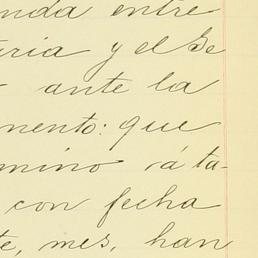 nda entre
taria y el Se
ante la
mento: que
mino rá ta-
con fecha
te, mes, han